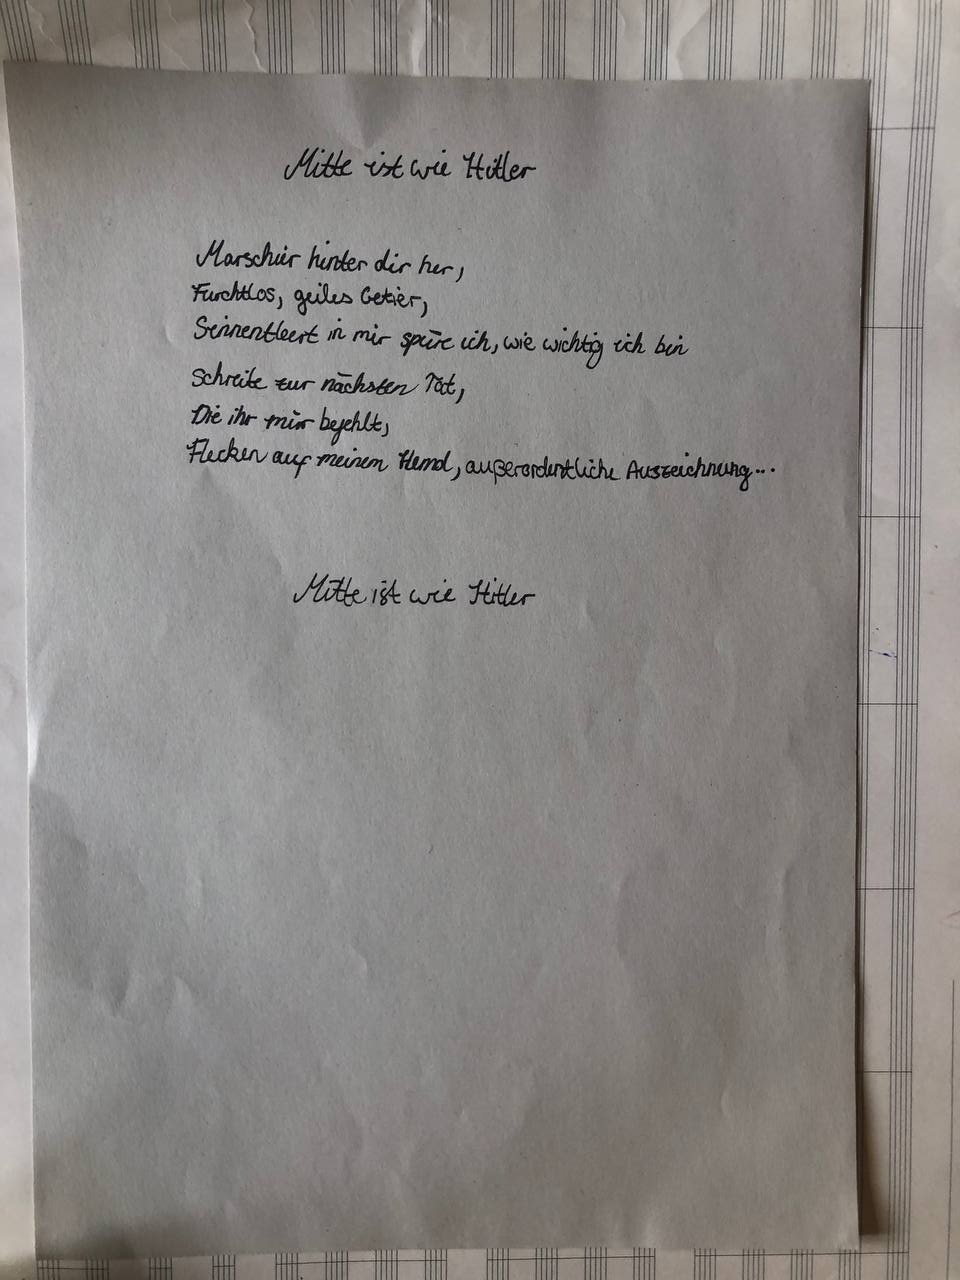 Mitte ist wie Hitler
Marschier hinter dir her,
Furchtlos, geiles Getier,
Sinnentleert in mir spüre ich, wie wichtig ich bin
Schreite zur nächsten Tat,
Die ihr mir befehlt,
Flecken auf meinem Hemd, außerordentliche Auszeichnung...
Mitte ist wie Hitler